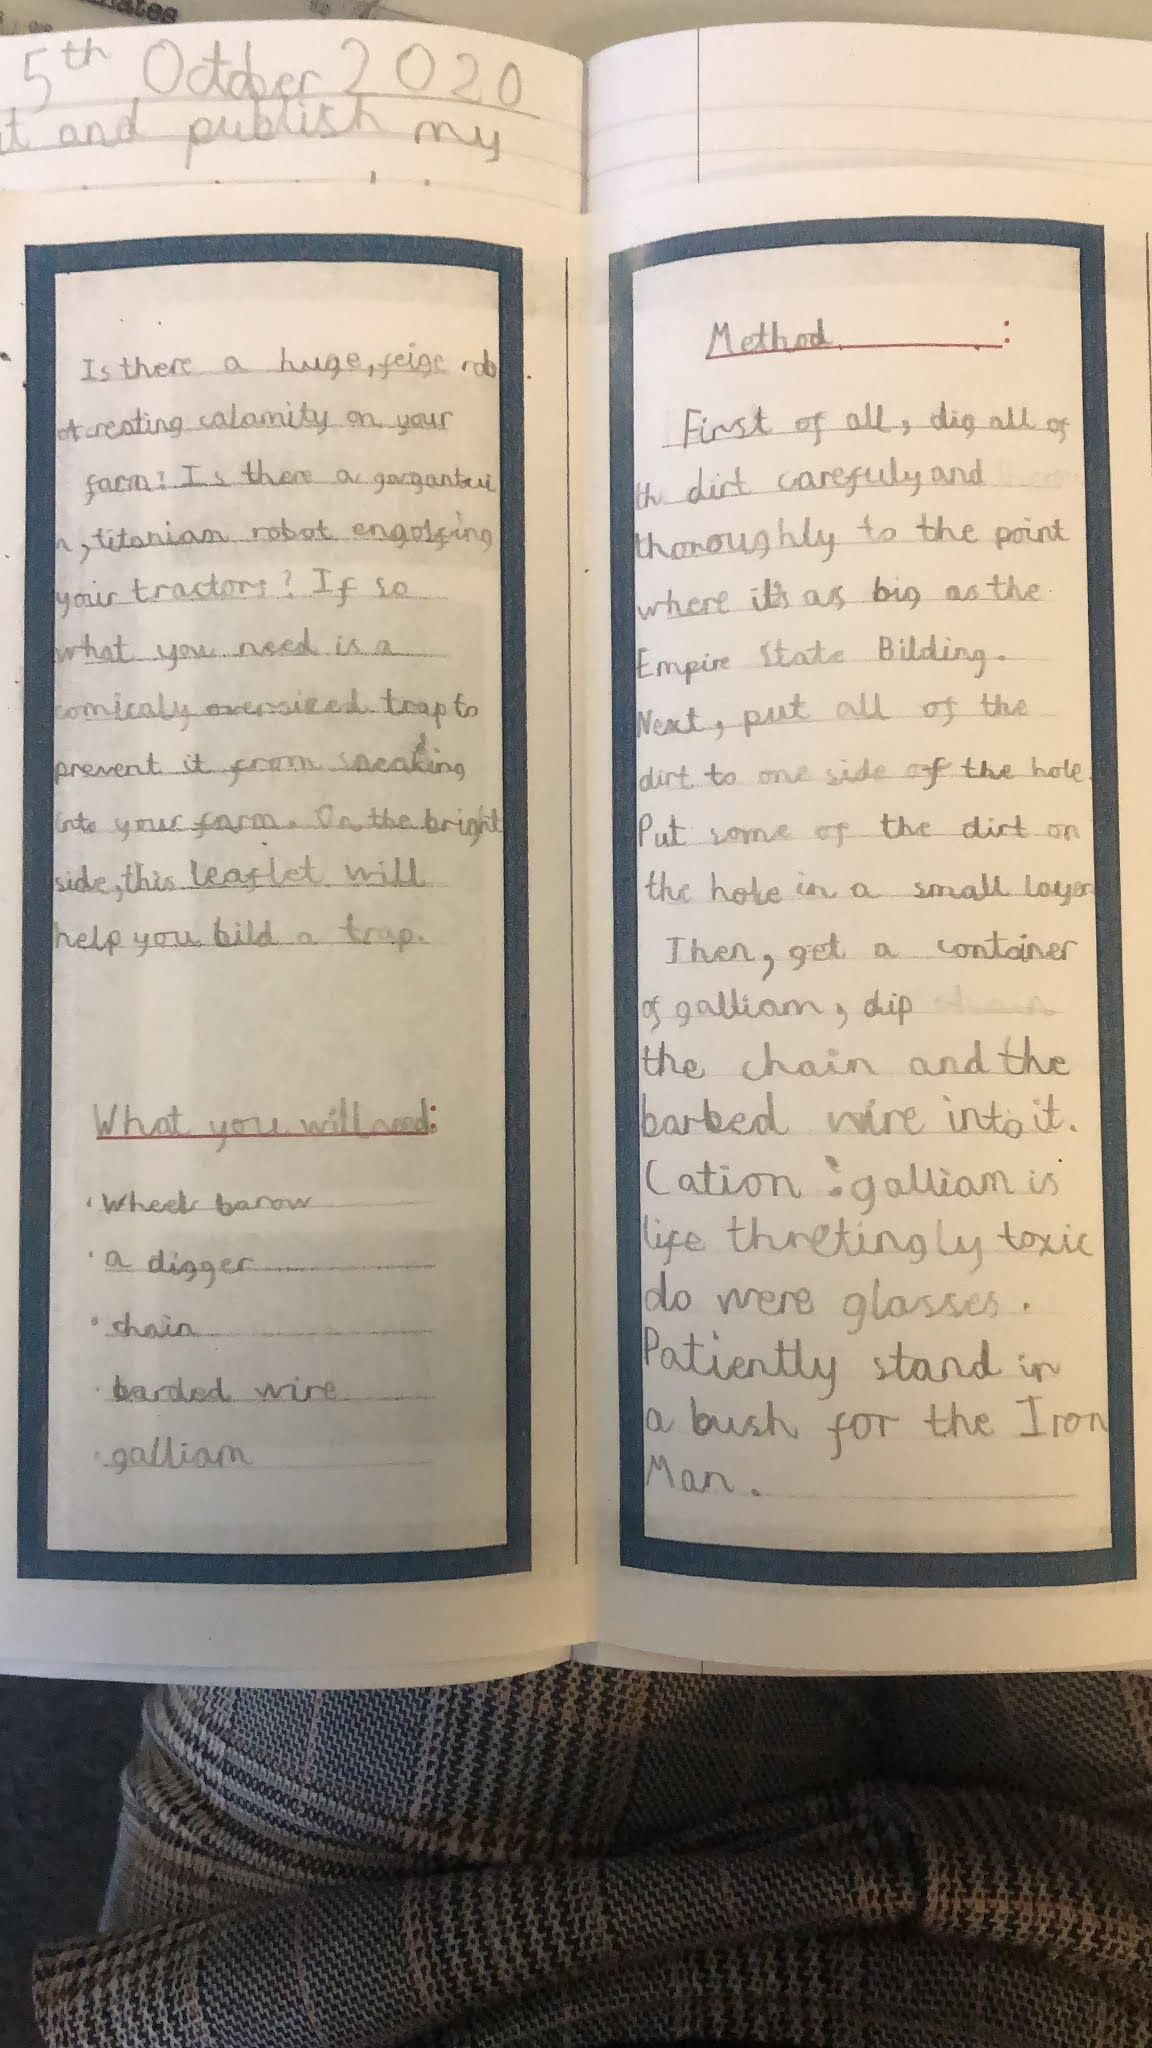 5th October 2020
and publish my
Is there a huge, feige rob
ot creating calamity on your
farm? Is there a gargantui
n, titaniam robot engolfing
your tractors? If so
what you need is a
comicaly oversized trap to
prevent it from sneaking
into your farm. On the bright
side, this leaflet will
help you bild a trap.
What you will need:
· Wheel barow
· a digger
· chain
· barded wire
· galliam
Method :
First of all, dig all of
th dirt carefuly and
thoroughly to the point
where it's as big as the
Empire State Bilding.
Next, put all of the
dirt to one side of the hole.
Put some of the dirt on
the hole in a small layer.
Then, get a container
of galliam, dip
the chain and the
barbed wire into it.
Cation : galliam is
life thretingly toxic
do were glasses.
Patiently stand in
a bush for the Iron
Man.